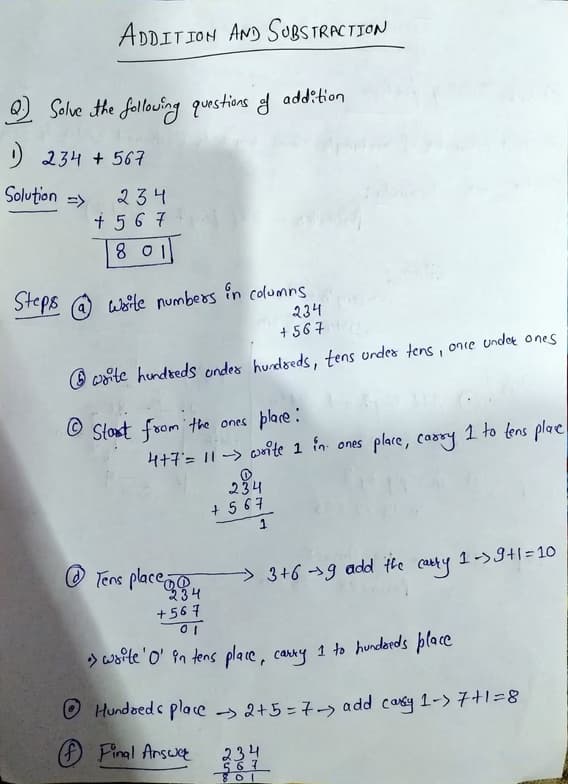 ADDITION AND SUBSTRACTION
Q) Solve the following questions of addition
1) 234 + 567
Solution => 2 3 4
+ 5 6 7
8 0 1
Steps (a) write numbers in columns
234
+ 567
(b) write hundreds under hundreds, tens under tens, once under ones
(c) Start from the ones place:
4+7 = 11 → write 1 in ones place, carry 1 to tens place
(1)
234
+ 567
1
(d) Tens place → 3+6 → 9 add the carry 1 -> 9+1=10
(1)(1)
234
+567
01
-> write '0' in tens place, carry 1 to hundreds place
(e) Hundreds place → 2+5=7 → add carry 1-> 7+1=8
(f) Final Answer 234
567
801